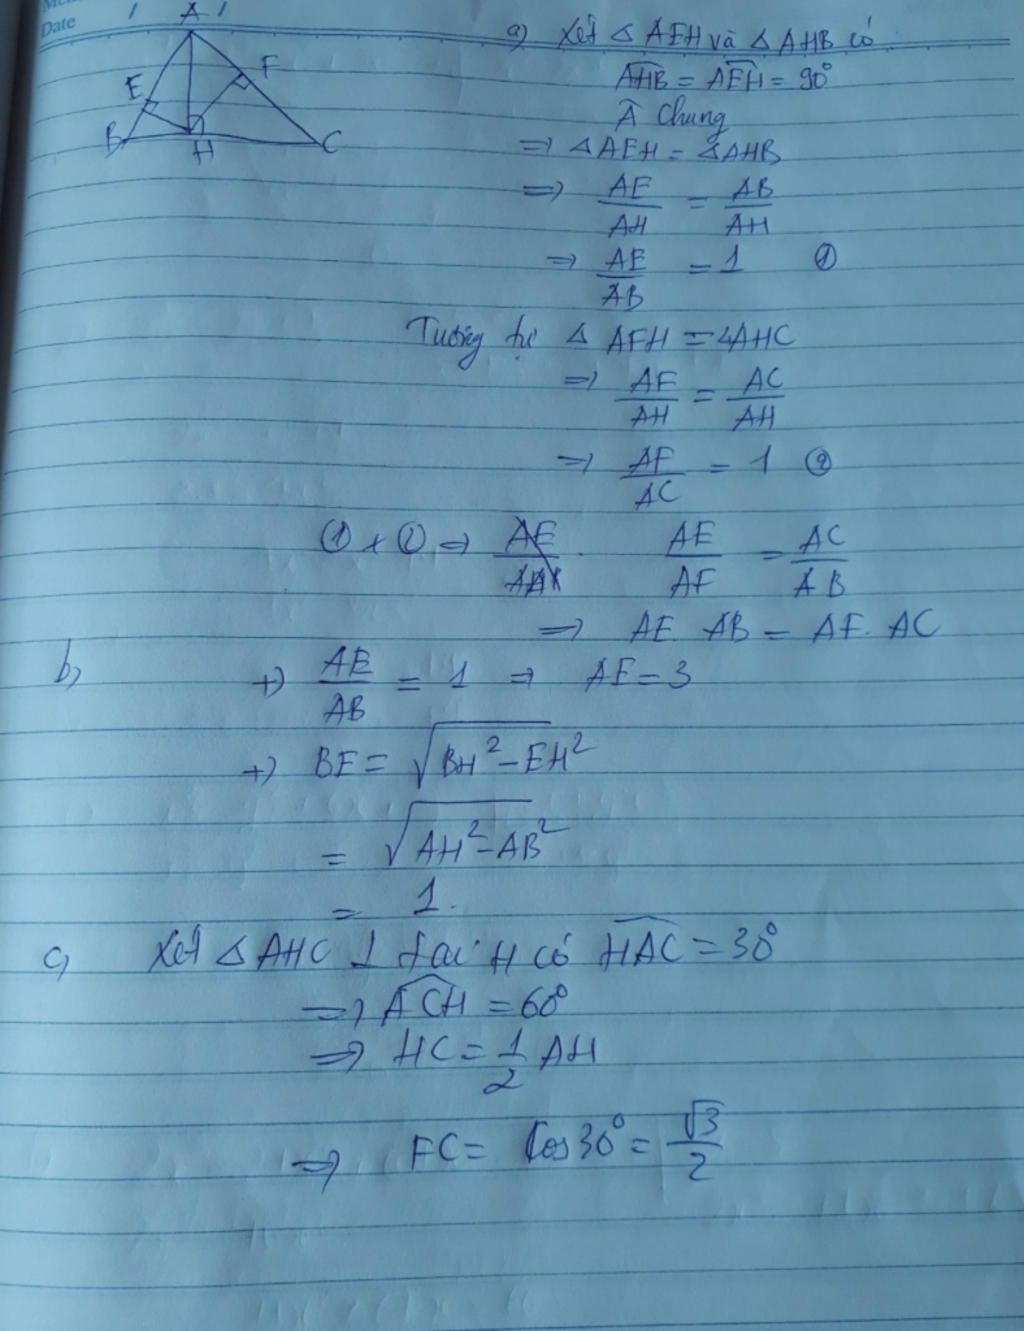 Date / /
A
E
F
B
H
C
a) Xét △ AEH và △ AHB có
\widehat{AHB} = \widehat{AEH} = 90°
Â chung
=> △AEH = △AHB
=> \frac{AE}{AH} = \frac{AB}{AH}
=> \frac{AE}{AB} = 1 ①
Tương tự △ AFH = △AHC
=> \frac{AF}{AH} = \frac{AC}{AH}
=> \frac{AF}{AC} = 1 ②
① + ② => \frac{AE}{AF} = \frac{AC}{AB}
=> AE. AB = AF. AC
b) +) \frac{AE}{AB} = 1 => AE = 3
+) BE = \sqrt{BH^2 - EH^2}
= \sqrt{AH^2 - AB^2}
= 1.
c) Xét △ AHC ⊥ tại H có \widehat{HAC} = 30°
=> \widehat{ACH} = 60°
=> HC = \frac{1}{2} AH
=> FC = Cos 30° = \frac{\sqrt{3}}{2}